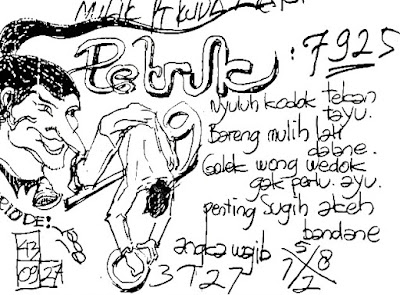 MILIK
Petruk : 7925
Nyuluh kodok tekan
tayu.
Bareng mulih lali
dalane.
Golek wong wedok
gak perlu ayu.
penting sugih akeh
bandane
ODE:
42
09 27
angka wajib
3727
5
7 8
2